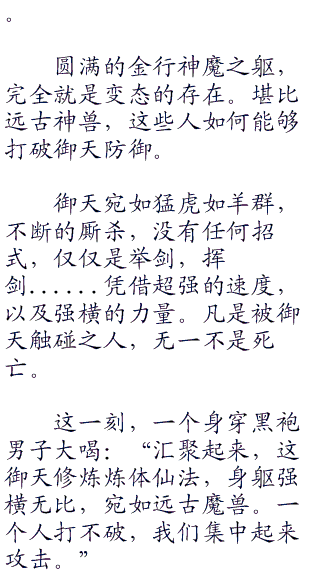 。
圆满的金行神魔之躯，
完全就是变态的存在。堪比
远古神兽，这些人如何能够
打破御天防御。
御天宛如猛虎如羊群，
不断的厮杀，没有任何招
式，仅仅是举剑，挥
剑......凭借超强的速度，
以及强横的力量。凡是被御
天触碰之人，无一不是死
亡。
这一刻，一个身穿黑袍
男子大喝：“汇聚起来，这
御天修炼炼体仙法，身躯强
横无比，宛如远古魔兽。一
个人打不破，我们集中起来
攻击。”